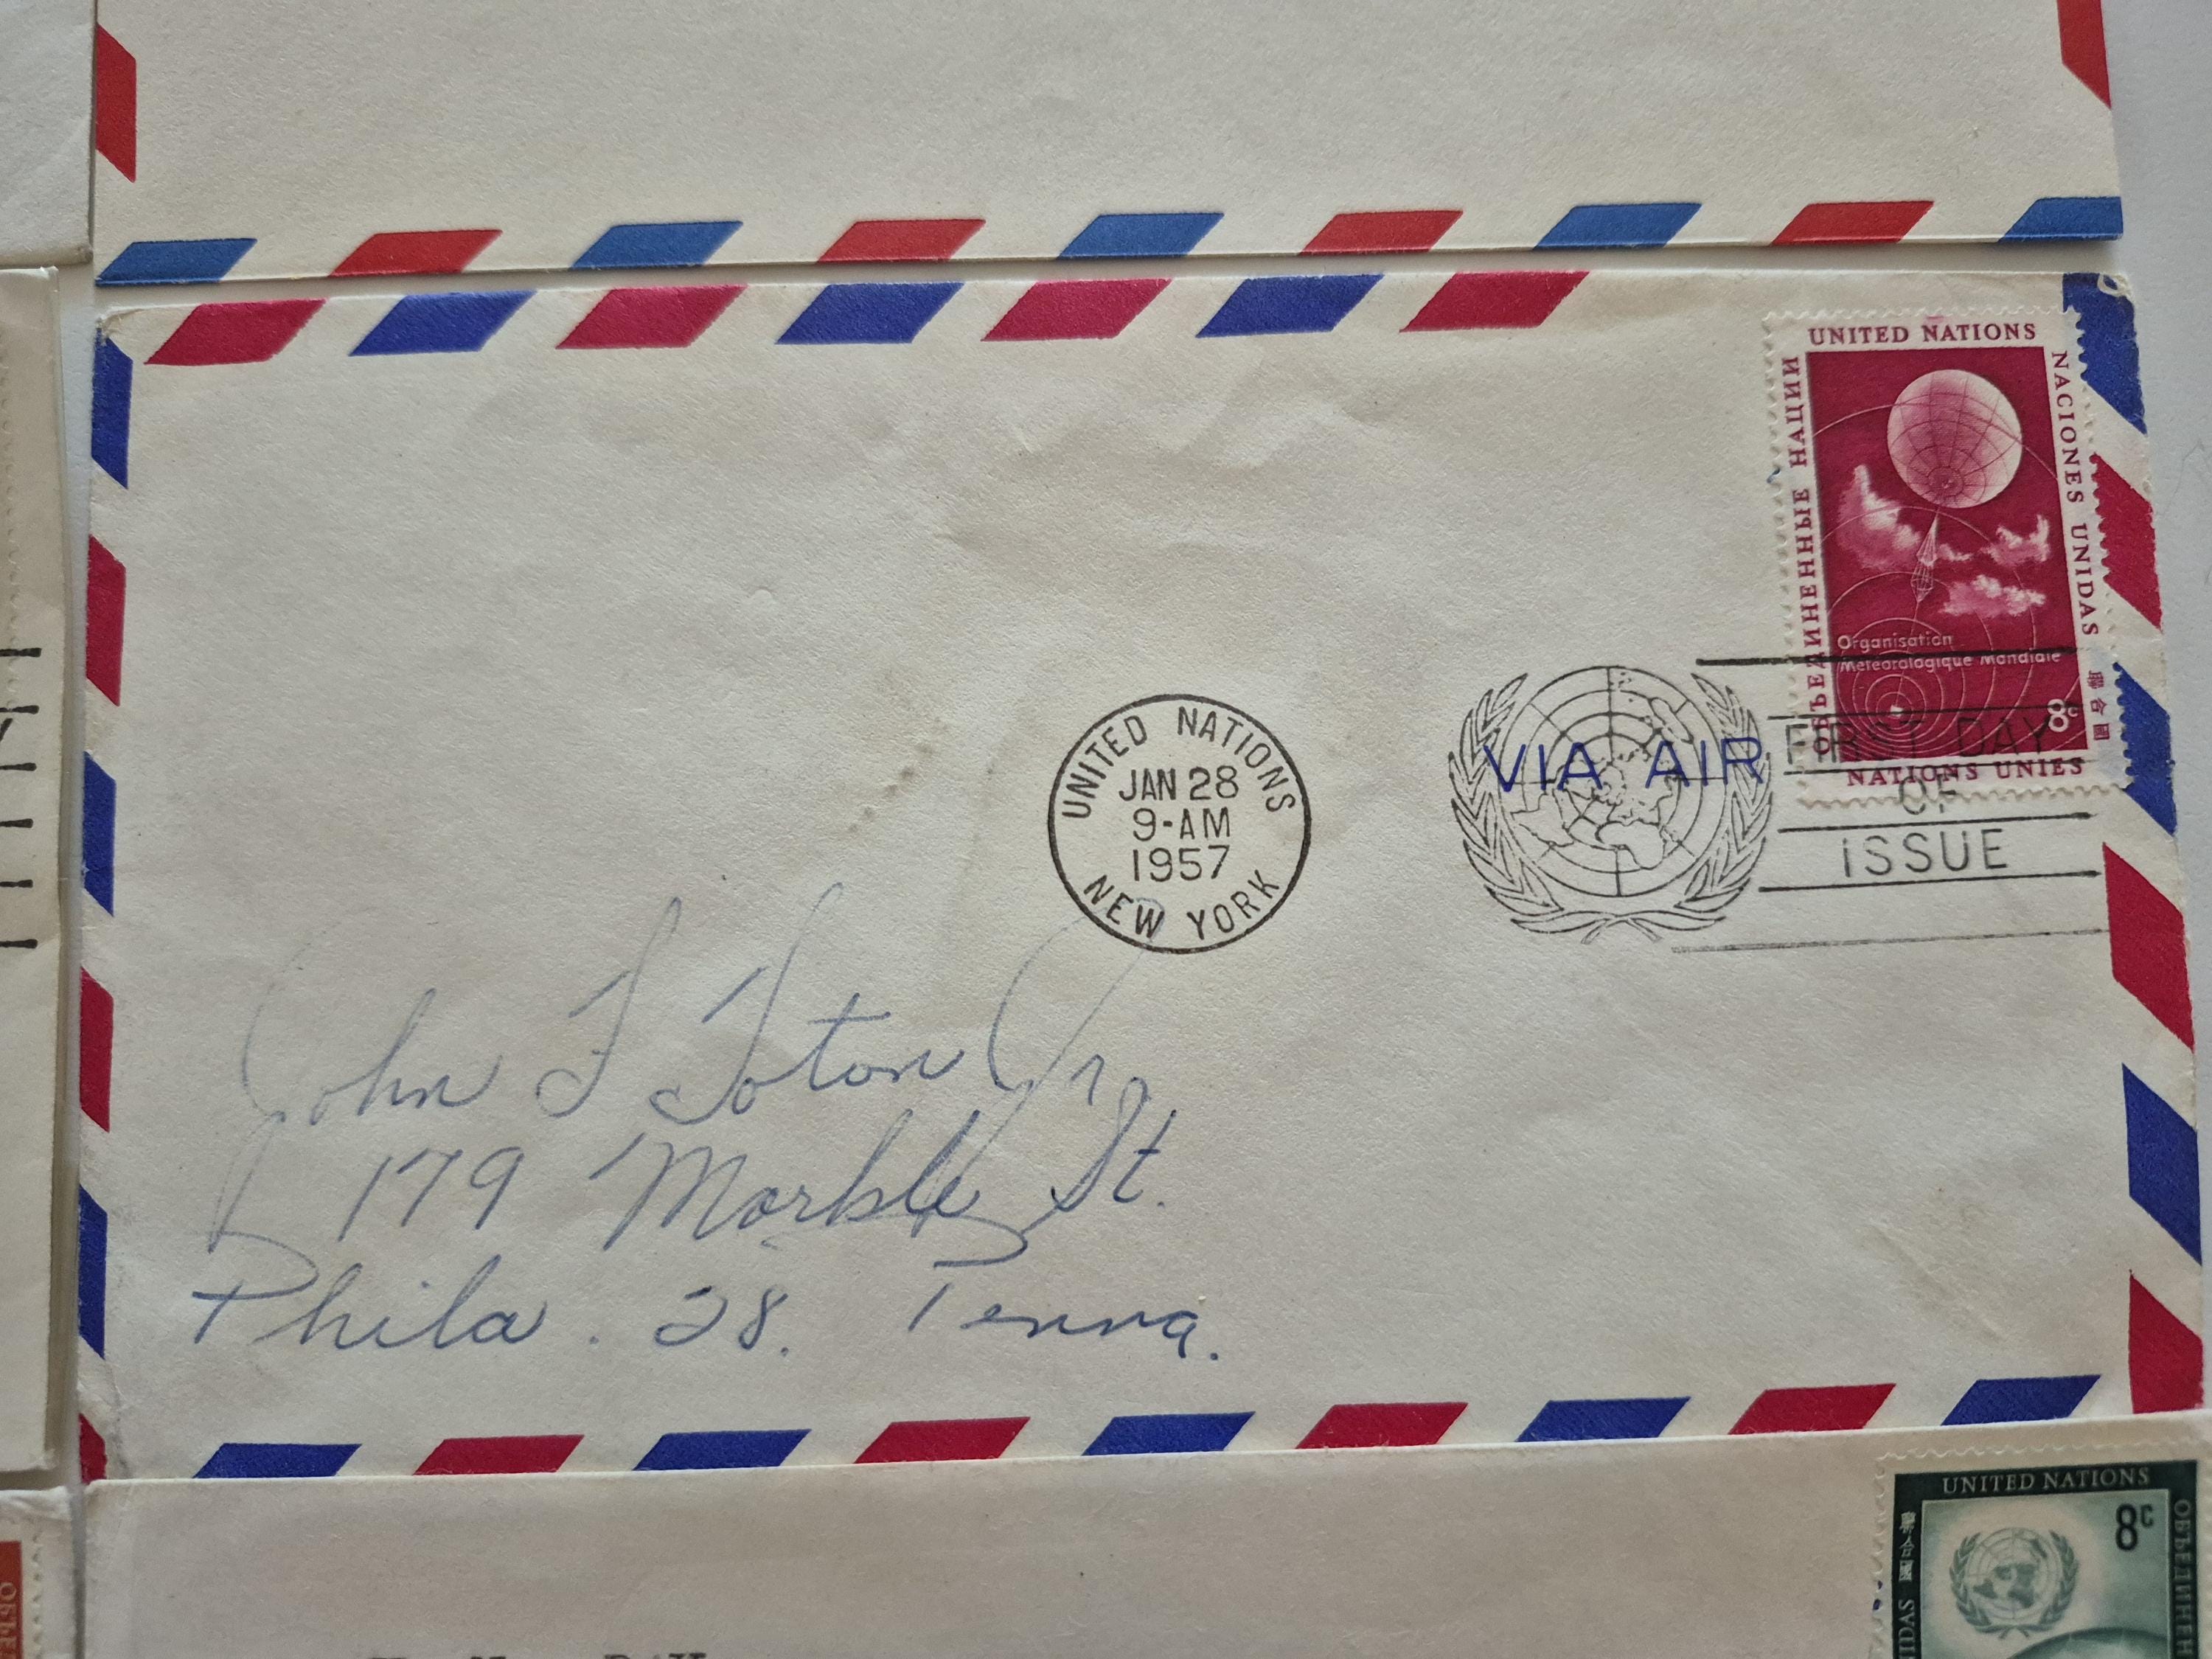 UNITED NATIONS
ОБЪЕДИНЕННЫЕ НАЦИИ
NACIONES UNIDAS
聯合國
Organisation
Météorologique Mondiale
8c
NATIONS UNIES
VIA AIR
FIRST DAY
OF
ISSUE
UNITED NATIONS
JAN 28
9-AM
1957
NEW YORK
John F Toton Jr.
179 Markle St.
Phila. 28. Penna.
UNITED NATIONS
8c